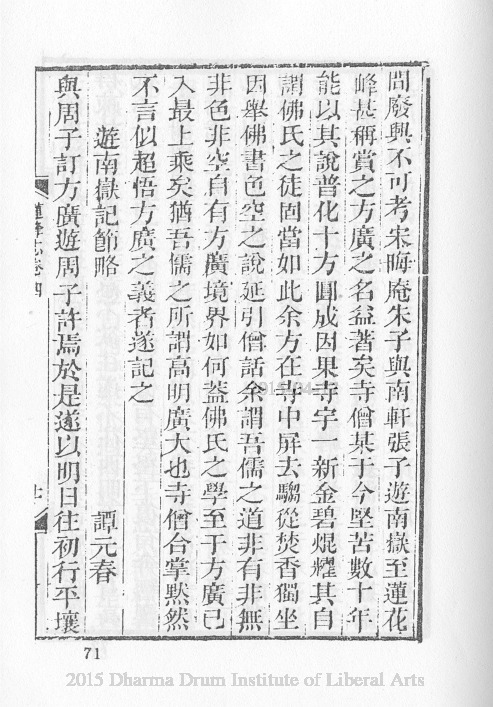 間廢興不可考宋晦庵朱子與南軒張子遊南嶽至蓮花
峰甚稱賞之方廣之名益著矣寺僧某于今堅苦數十年
能以其說普化十方圓成因果寺宇一新金碧焜耀其自
謂佛氏之徒固當如此余方在寺中屏去騶從焚香獨坐
因舉佛書色空之說延引僧話余謂吾儒之道非有非無
非色非空自有方廣境界如何蓋佛氏之學至于方廣已
入最上乘矣猶吾儒之所謂高明廣大也寺僧合掌默然
不言似超悟方廣之義者遂記之
遊南嶽記節略
譚元春
與周子訂方廣遊周子許焉於是遂以明日往初行平壤
蓮峰志卷四
七
71
2015 Dharma Drum Institute of Liberal Arts